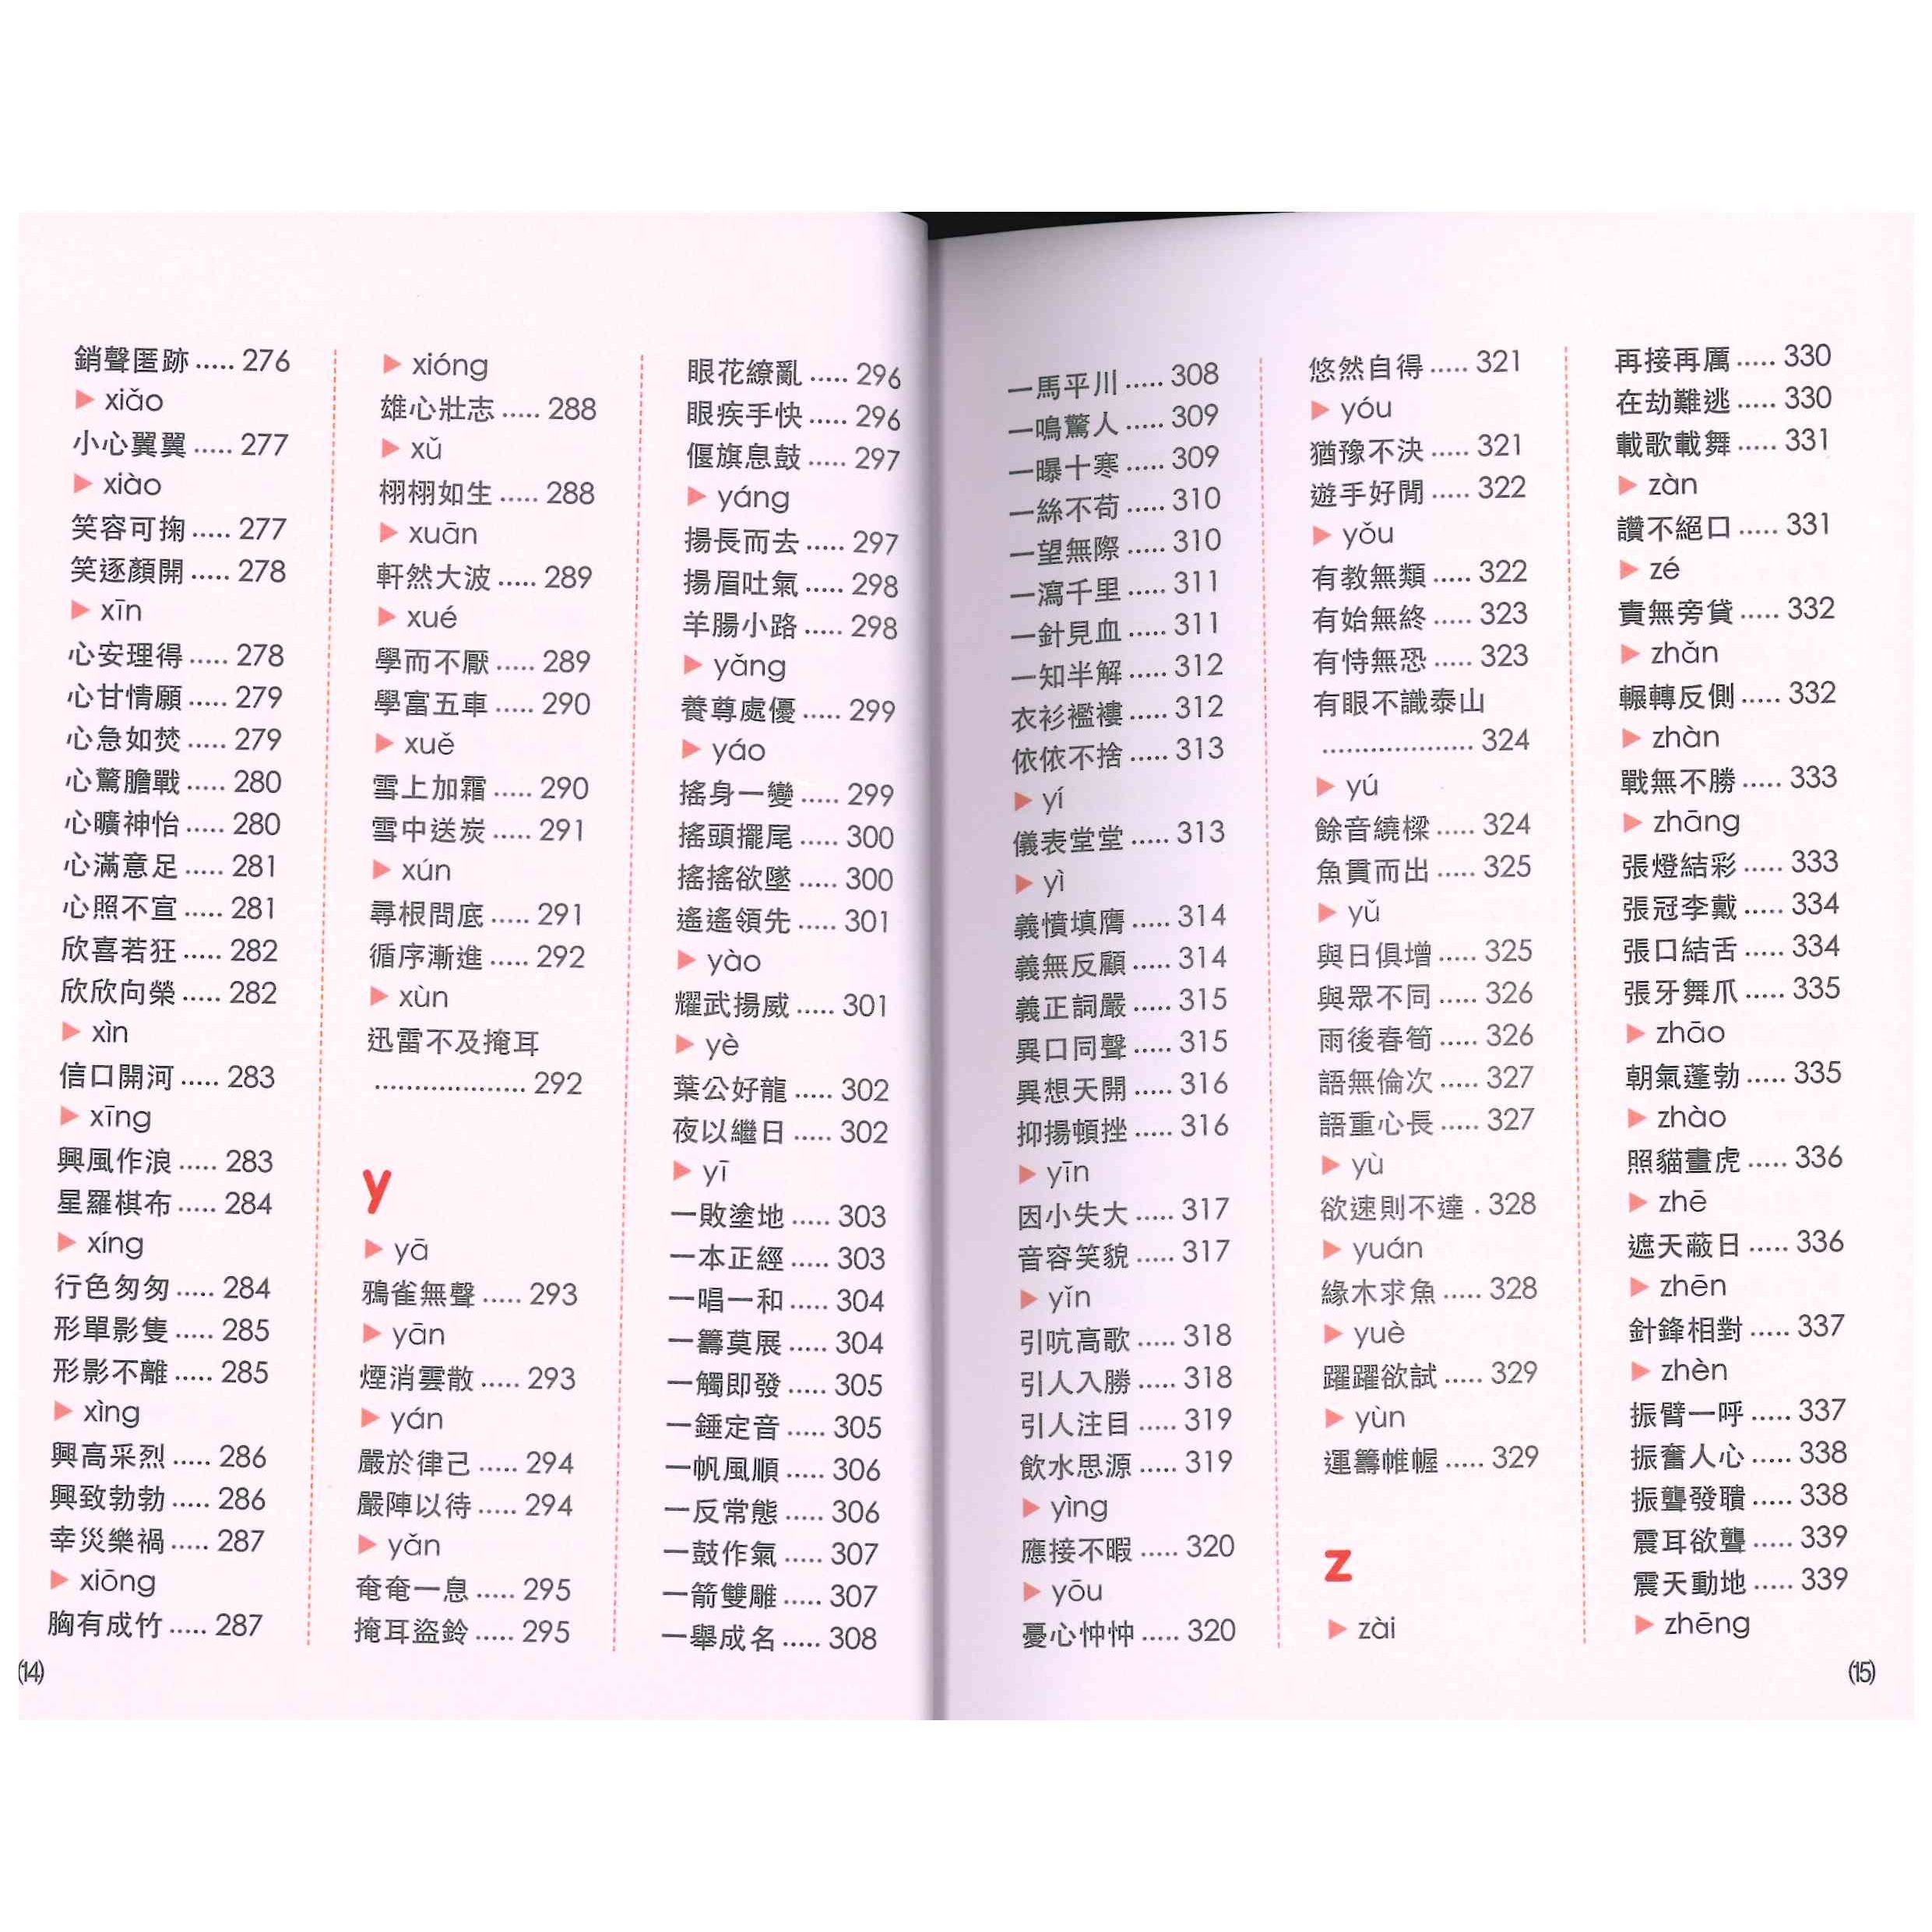 銷聲匿跡 ..... 276
▶ xiǎo
小心翼翼 ..... 277
▶ xiào
笑容可掬 ..... 277
笑逐顏開 ..... 278
▶ xīn
心安理得 ..... 278
心甘情願 ..... 279
心急如焚 ..... 279
心驚膽戰 ..... 280
心曠神怡 ..... 280
心滿意足 ..... 281
心照不宣 ..... 281
欣喜若狂 ..... 282
欣欣向榮 ..... 282
▶ xìn
信口開河 ..... 283
▶ xīng
興風作浪 ..... 283
星羅棋布 ..... 284
▶ xíng
行色匆匆 ..... 284
形單影隻 ..... 285
形影不離 ..... 285
▶ xìng
興高采烈 ..... 286
興致勃勃 ..... 286
幸災樂禍 ..... 287
▶ xiōng
胸有成竹 ..... 287
▶ xióng
雄心壯志 ..... 288
▶ xǔ
栩栩如生 ..... 288
▶ xuān
軒然大波 ..... 289
▶ xué
學而不厭 ..... 289
學富五車 ..... 290
▶ xuě
雪上加霜 ..... 290
雪中送炭 ..... 291
▶ xún
尋根問底 ..... 291
循序漸進 ..... 292
▶ xùn
迅雷不及掩耳
................... 292
y
▶ yā
鴉雀無聲 ..... 293
▶ yān
煙消雲散 ..... 293
▶ yán
嚴於律己 ..... 294
嚴陣以待 ..... 294
▶ yǎn
奄奄一息 ..... 295
掩耳盜鈴 ..... 295
眼花繚亂 ..... 296
眼疾手快 ..... 296
偃旗息鼓 ..... 297
▶ yáng
揚長而去 ..... 297
揚眉吐氣 ..... 298
羊腸小路 ..... 298
▶ yǎng
養尊處優 ..... 299
▶ yáo
搖身一變 ..... 299
搖頭擺尾 ..... 300
搖搖欲墜 ..... 300
遙遙領先 ..... 301
▶ yào
耀武揚威 ..... 301
▶ yè
葉公好龍 ..... 302
夜以繼日 ..... 302
▶ yī
一敗塗地 ..... 303
一本正經 ..... 303
一唱一和 ..... 304
一籌莫展 ..... 304
一觸即發 ..... 305
一錘定音 ..... 305
一帆風順 ..... 306
一反常態 ..... 306
一鼓作氣 ..... 307
一箭雙雕 ..... 307
一舉成名 ..... 308
(14)
一馬平川 ..... 308
一鳴驚人 ..... 309
一曝十寒 ..... 309
一絲不苟 ..... 310
一望無際 ..... 310
一瀉千里 ..... 311
一針見血 ..... 311
一知半解 ..... 312
衣衫襤褸 ..... 312
依依不捨 ..... 313
▶ yí
儀表堂堂 ..... 313
▶ yì
義憤填膺 ..... 314
義無反顧 ..... 314
義正詞嚴 ..... 315
異口同聲 ..... 315
異想天開 ..... 316
抑揚頓挫 ..... 316
▶ yīn
因小失大 ..... 317
音容笑貌 ..... 317
▶ yǐn
引吭高歌 ..... 318
引人入勝 ..... 318
引人注目 ..... 319
飲水思源 ..... 319
▶ yìng
應接不暇 ..... 320
▶ yōu
憂心忡忡 ..... 320
悠然自得 ..... 321
▶ yóu
猶豫不決 ..... 321
遊手好閒 ..... 322
▶ yǒu
有教無類 ..... 322
有始無終 ..... 323
有恃無恐 ..... 323
有眼不識泰山
................... 324
▶ yú
餘音繞樑 ..... 324
魚貫而出 ..... 325
▶ yǔ
與日俱增 ..... 325
與眾不同 ..... 326
雨後春筍 ..... 326
語無倫次 ..... 327
語重心長 ..... 327
▶ yù
欲速則不達 . 328
▶ yuán
緣木求魚 ..... 328
▶ yuè
躍躍欲試 ..... 329
▶ yùn
運籌帷幄 ..... 329
z
▶ zài
再接再厲 ..... 330
在劫難逃 ..... 330
載歌載舞 ..... 331
▶ zàn
讚不絕口 ..... 331
▶ zé
責無旁貸 ..... 332
▶ zhǎn
輾轉反側 ..... 332
▶ zhàn
戰無不勝 ..... 333
▶ zhāng
張燈結彩 ..... 333
張冠李戴 ..... 334
張口結舌 ..... 334
張牙舞爪 ..... 335
▶ zhāo
朝氣蓬勃 ..... 335
▶ zhào
照貓畫虎 ..... 336
▶ zhē
遮天蔽日 ..... 336
▶ zhēn
針鋒相對 ..... 337
▶ zhèn
振臂一呼 ..... 337
振奮人心 ..... 338
振聾發聵 ..... 338
震耳欲聾 ..... 339
震天動地 ..... 339
▶ zhēng
(15)